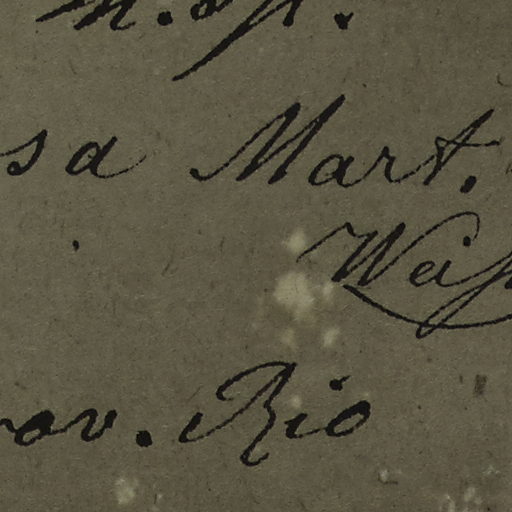 n. sp.
sa Mart.
Weiſs
rov. Rio